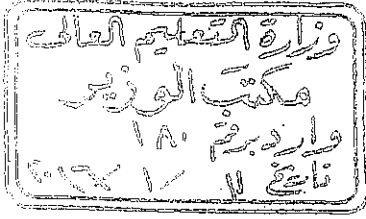 وزارة التعليم العالى
مكتب الوزير
وارد برقم ١٨٠
تاريخ ١١ / ١